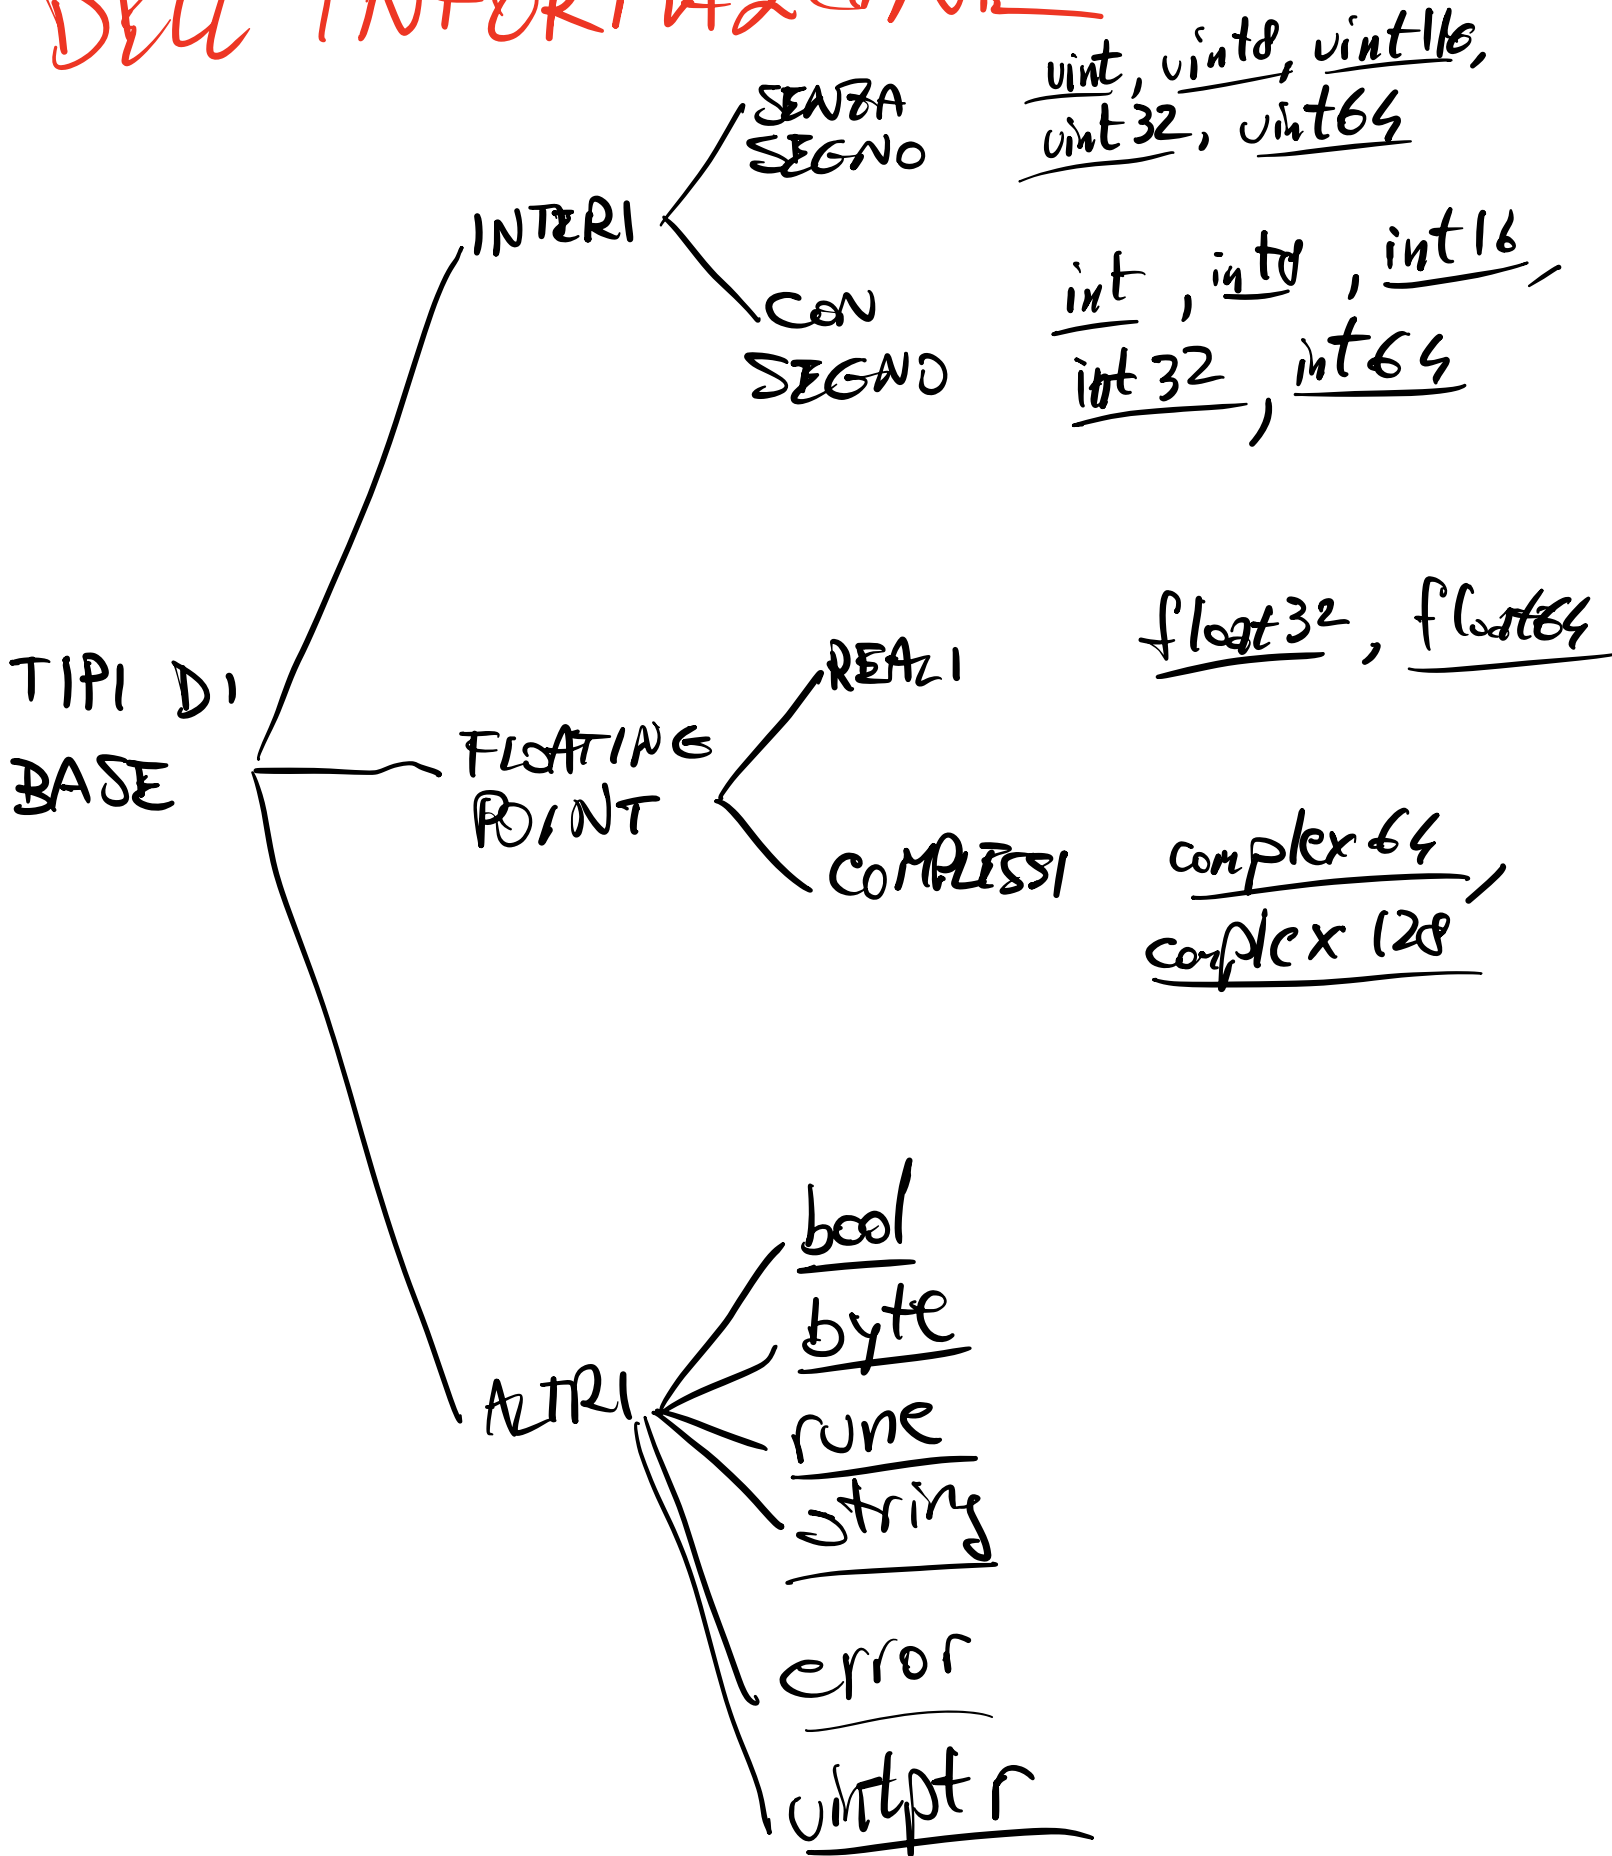 DELL'INFORMAZIONE
SENZA
SEGNO
uint, uint8, uint16,
uint32, uint64
INTERI
CON
SEGNO
int, int8, int16,
int32, int64
TIPI DI
BASE
FLOATING
POINT
REALI
float32, float64
COMPLESSI
complex64,
complex128
ALTRI
bool
byte
rune
string
error
uintptr